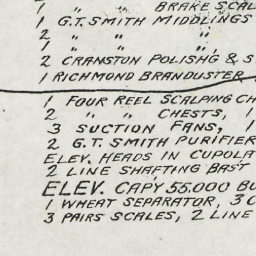 1 " " BRAKE SCAL
1 G.T. SMITH MIDDLINGS
2 " " "
1 " " "
2 CRANSTON POLISHG & S
1 RICHMOND BRANDUSTER
1 FOUR REEL SCALPING CH
2 " " CHESTS, 1
3 SUCTION FANS, 1
2 G.T. SMITH PURIFIER
ELEV. HEADS IN CUPOLA
2 LINE SHAFTING BAS'T
ELEV. CAPY 55.000 BU
1 WHEAT SEPARATOR, 3 C
3 PAIRS SCALES, 2 LINE